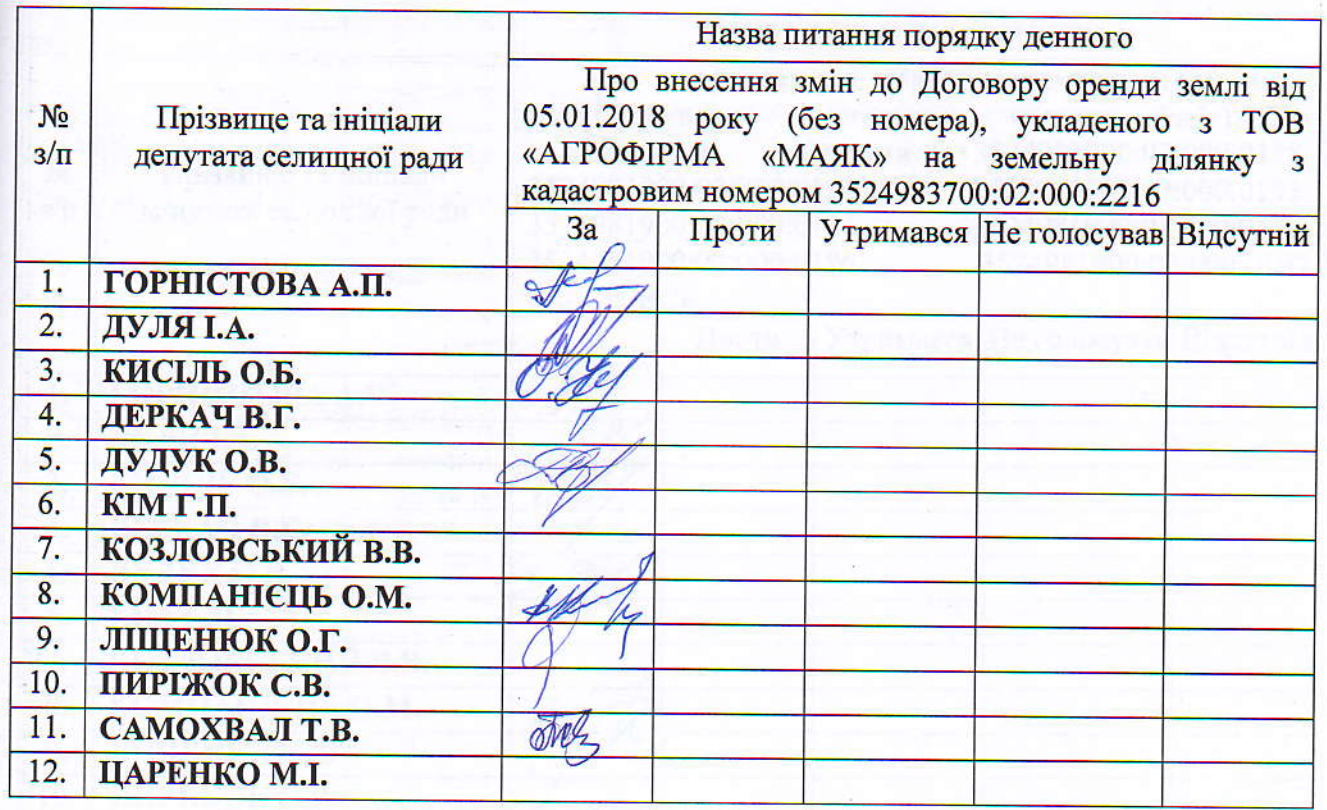 №
з/п
Прізвище та ініціали
депутата селищної ради
Назва питання порядку денного
Про внесення змін до Договору оренди землі від
05.01.2018 року (без номера), укладеного з ТОВ
«АГРОФІРМА «МАЯК» на земельну ділянку з
кадастровим номером 3524983700:02:000:2216
За Проти Утримався Не голосував Відсутній
1. ГОРНІСТОВА А.П.
2. ДУЛЯ І.А.
3. КИСІЛЬ О.Б.
4. ДЕРКАЧ В.Г.
5. ДУДУК О.В.
6. КІМ Г.П.
7. КОЗЛОВСЬКИЙ В.В.
8. КОМПАНІЄЦЬ О.М.
9. ЛІЩЕНЮК О.Г.
10. ПИРІЖОК С.В.
11. САМОХВАЛ Т.В.
12. ЦАРЕНКО М.І.